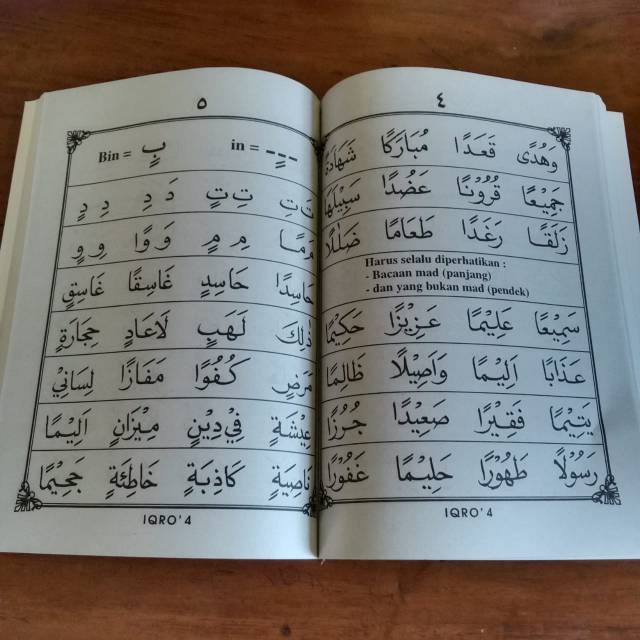 ٤
وَهُدًى قَعَدَا مُبَارَكًا شَهَادَةً
جَمِيْعًا قُرُوْنًا عَضُدًا سَبِيْلَهَا
زَلَقًا رَغَدًا طَعَامًا ضَلٰلًا
Harus selalu diperhatikan :
- Bacaan mad (panjang)
- dan yang bukan mad (pendek)
سَمِيْعًا عَلِيْمًا عَزِيْزًا حَكِيْمًا
عَذَابًا اَلِيْمًا وَاَصِيْلًا ظَالِمًا
يَتِيْمًا فَقِيْرًا صَعِيْدًا جُرُزًا
رَسُوْلًا طَهُوْرًا حَلِيْمًا غَفُوْرًا
IQRO' 4
٥
in = ـٍـ Bin = بٍ
تَ تِ تِ تٍ دَ دِ دِ دٍ
مَ مًا مِ مٍ وَ وًا وِ وٍ
حَاسِدًا حَاسِدٍ غَاسِقًا غَاسِقٍ
ذٰلِكَ لَهَبٍ لَاعَادٍ حِجَارَةٍ
مَرَضٍ كُفُوًا مَفَازًا لِسَانِيْ
عِيْشَةٍ فِيْ دِيْنٍ مِيْزَانٍ اَلِيْمًا
نَاصِيَةٍ كَاذِبَةٍ خَاطِئَةٍ جَحِيْمًا
IQRO' 4